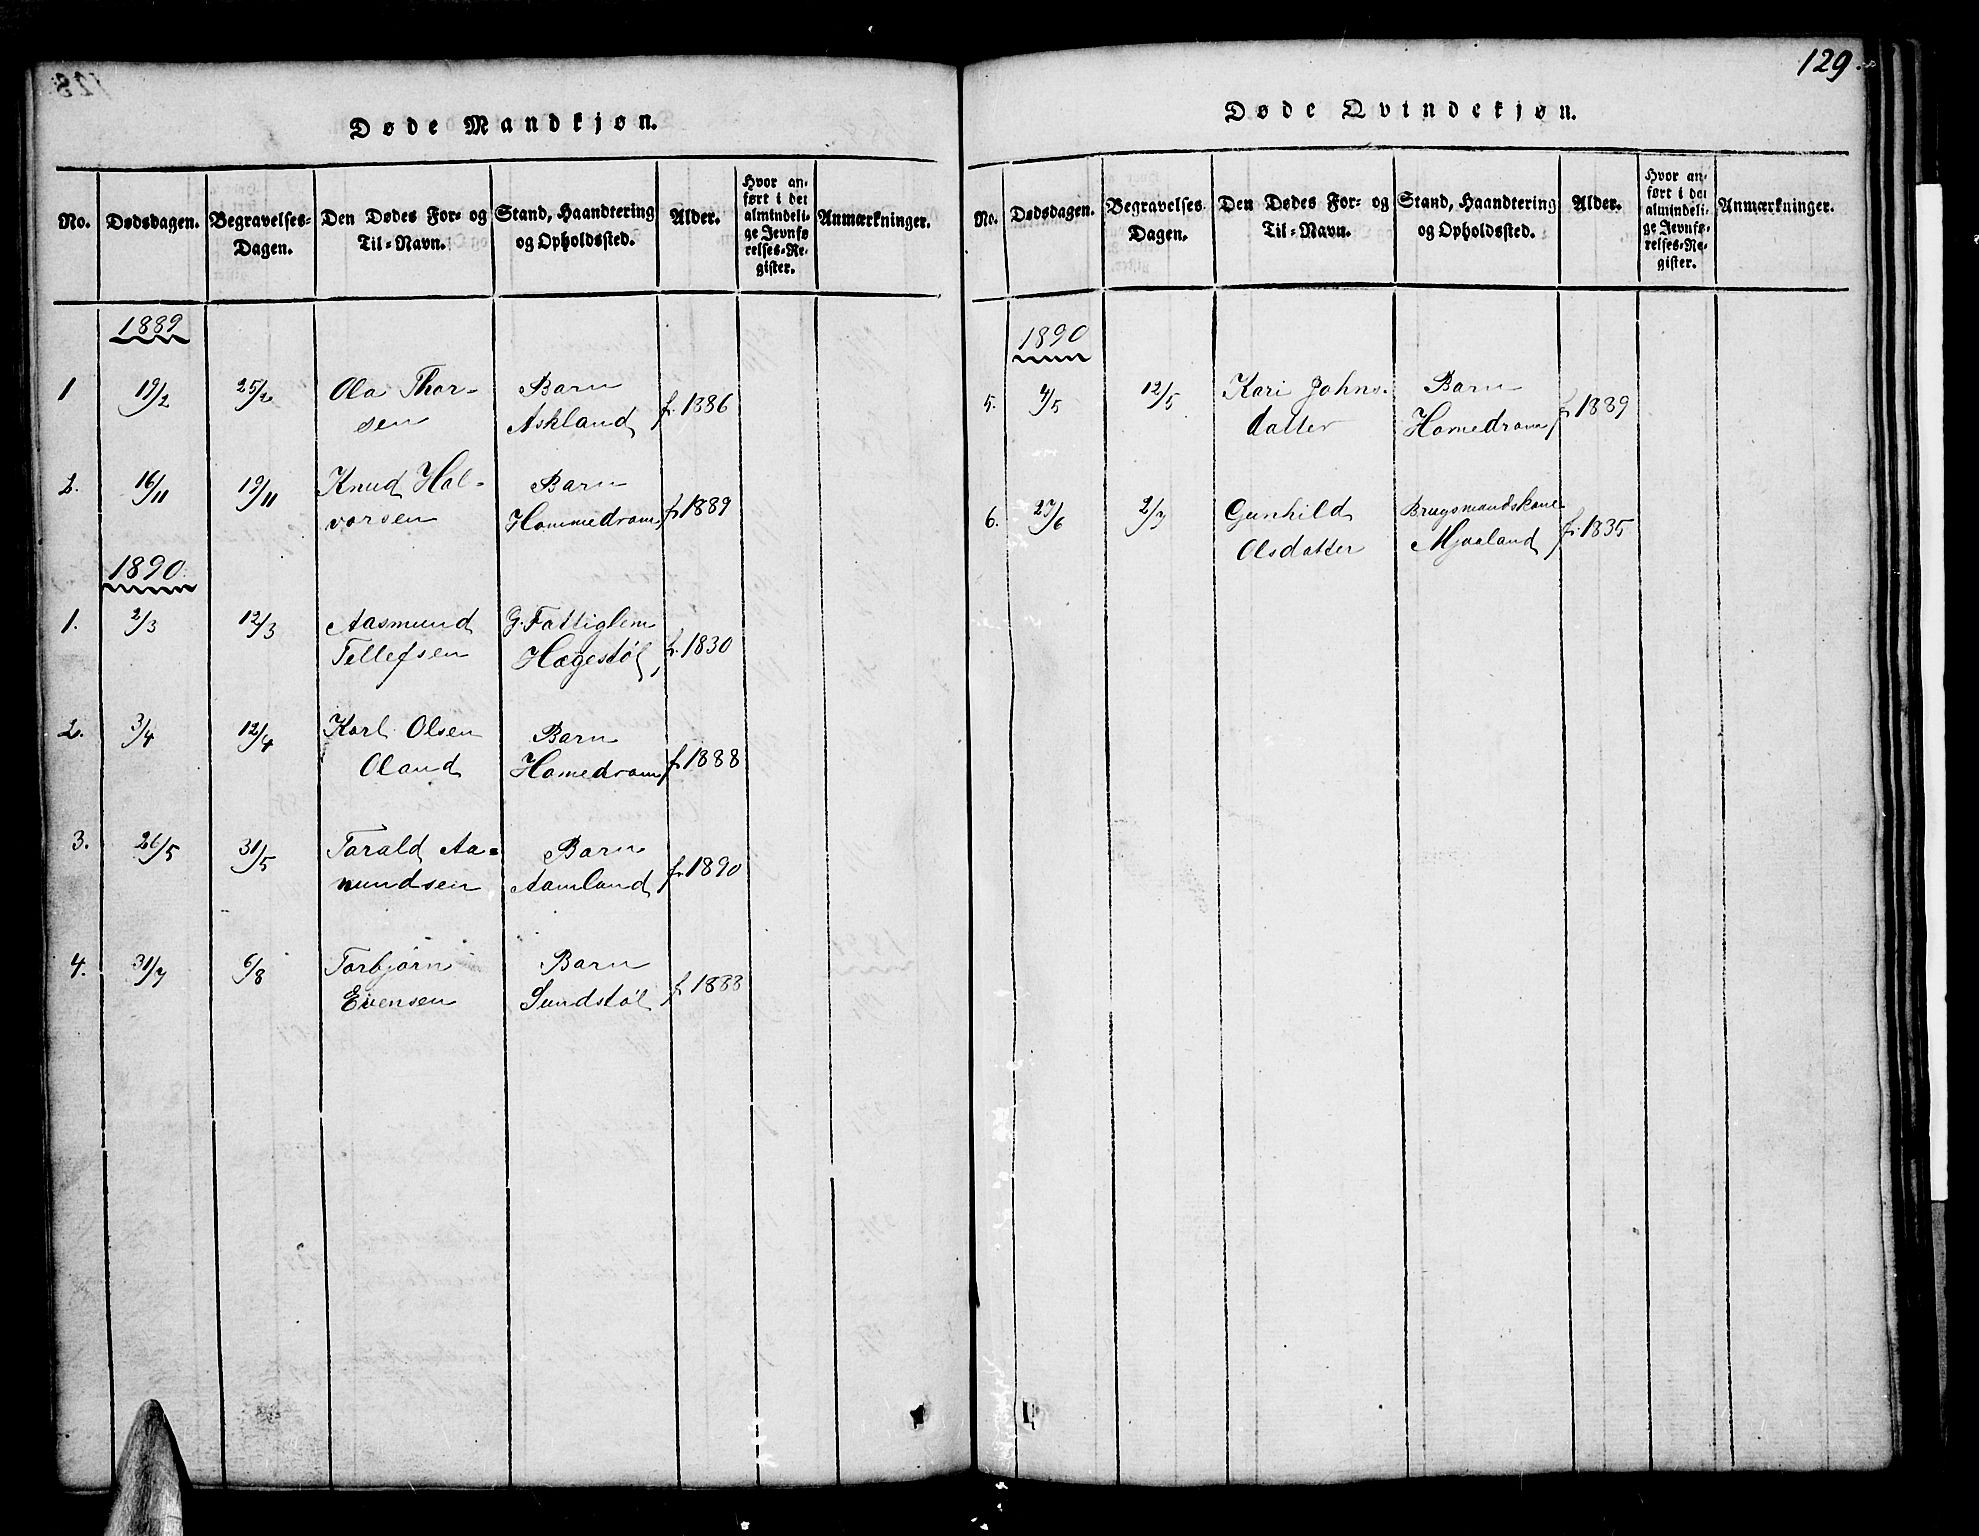 Døde Mandkjøn.
No.
Dødsdagen.
Begravelses-
Dagen.
Den Dødes For- og
Til-Navn.
Stand, Haandtering
og Opholdssted.
Alder.
Hvor an-
ført i det
almindeli-
ge Jevnfø-
relses-Re-
gister.
Anmærkninger.
1889
1 19/2 25/2 Ola Thor- Barn
sen Askland f. 1886
2. 16/11 19/11 Knud Hal- Barn
vorsen Hommedram f. 1889
1890.
1. 2/3 12/3 Aasmund G. Fattiglem
Tellefsen Hægestøl, f. 1830
2. 3/4 12/4 Karl Olsen Barn
Oland Homedram f. 1888
3. 26/5 31/5 Torald Aa- Barn
nundsen Aamland f. 1890
4. 31/7 6/8 Torbjørn Barn
Evensen Sundstøl f. 1888
129.
Døde Qvindekjøn.
No.
Dødsdagen.
Begravelses
Dagen.
Den Dødes For- og
Til-Navn.
Stand, Haandtering
og Opholdssted.
Alder.
Hvor an-
ført i det
almindeli-
ge Jevnfø-
relses-Re-
gister.
Anmærkninger.
1890
5. 4/5 12/5 Kari Johns- Barn
datter Homedram f. 1889
6. 27/6 2/7 Gunhild Brugsmandskone
Olsdatter Mjaaland f. 1835